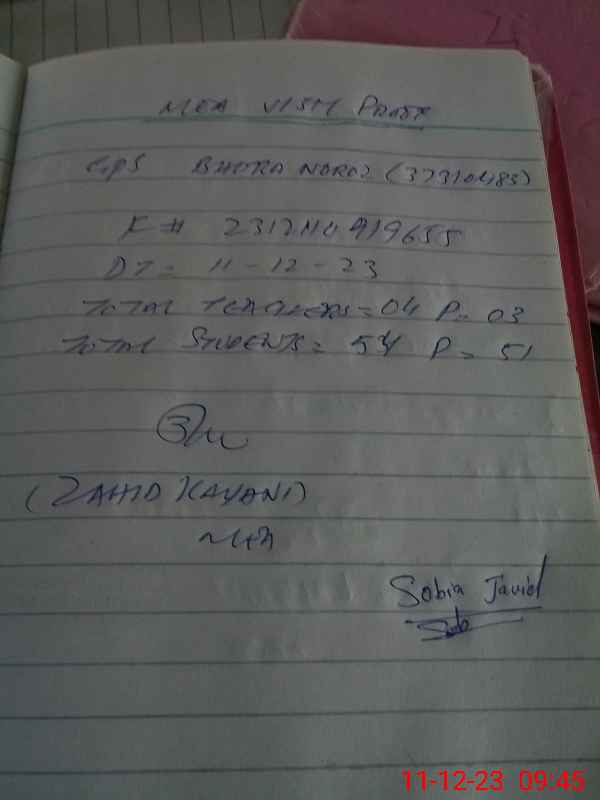 MEA VISIT PROOF
GPS BHORA NOROZ (37310483)
K# 2312110919655
DT= 11-12-23
TOTAL TEACHERS=04 P=03
TOTAL STUDENTS= 54 P= 51
(ZAHID KAYANI)
MEA
Sobia Javied
11-12-23 09:45